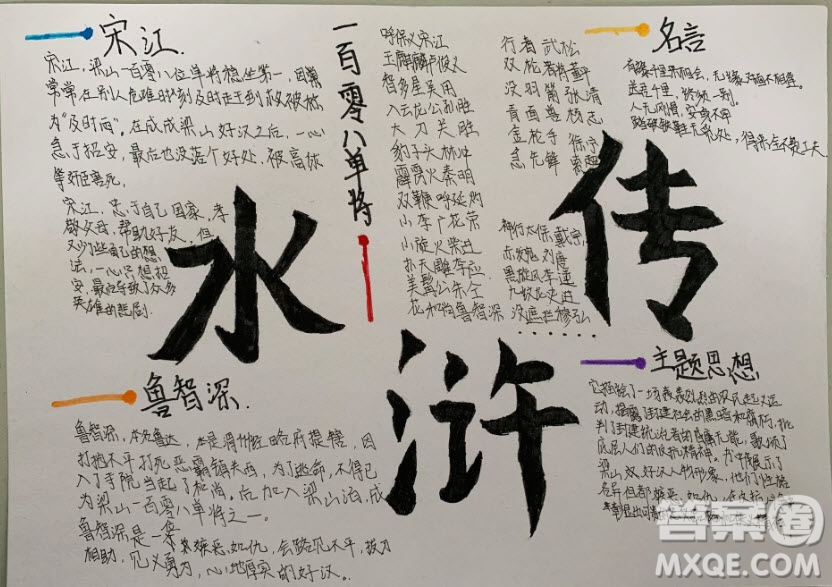 宋江
宋江,梁山一百零八位单将稳坐第一,因常
常常在别人危难时刻及时走到救被称
为“及时雨”。在成成梁山好汉之后,一心
急于招安,最后也没落个好处,被高俅
等奸臣害死。
宋江,忠于自己国家,孝
敬父母,帮助好友,但
又少了些自己的想
法,一心只想招
安,最后导致了众多
英雄的悲剧.
鲁智深.
鲁智深,本名鲁达,本是渭州经略府提辖,因
打抱不平打死恶霸镇关西,为了逃命,不得已
入了寺院当起了和尚。后加入梁山泊,成
为梁山一百零八单将之一。
鲁智深是一条 嫉恶如仇,会路见不平,拔刀
相助,见义勇为,心地厚实的好汉。
一百零八单将
呼保义宋江
玉麒麟卢俊义
智多星吴用
入云龙公孙胜
大刀关胜
豹子头林冲
霹雳火秦明
双鞭呼延灼
小李广花荣
小旋风柴进
扑天雕李应
美髯公朱仝
花和尚鲁智深
行者武松
双枪将董平
没羽箭张清
青面兽杨志
金枪手徐宁
急先锋索超
神行太保戴宗
赤发鬼刘唐
黑旋风李逵
九纹龙史进
没遮拦穆弘
......
水
浒
传
名言
有缘千里来相会,无缘对面不相逢。
送君千里,终须一别。
人无刚骨,安身不牢
踏破铁鞋无觅处,得来全不费工夫
主题思想
它描绘了一场轰轰烈烈的农民起义运
动,揭露了封建社会的黑暗和腐朽,批
判了封建统治者的腐庸无能,歌颂了
底层人们的反抗精神。书中展示了
梁山众好汉人物形象,他们性格
各异但都嫉恶如仇,
答案圈
MXQE.COM